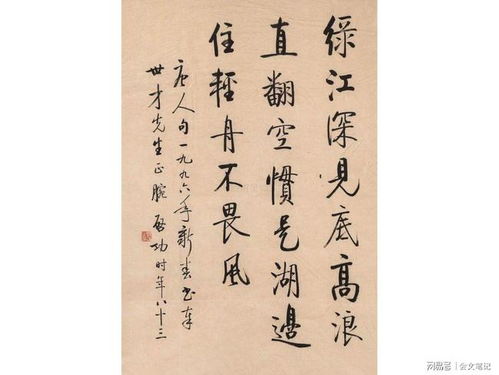 綠江深見底高浪
直翻空慣是湖邊
住輕舟不畏風
唐人句一九九六年新春書奉
世才先生正腕啟功時年八十三
网易号 | 会文笔记